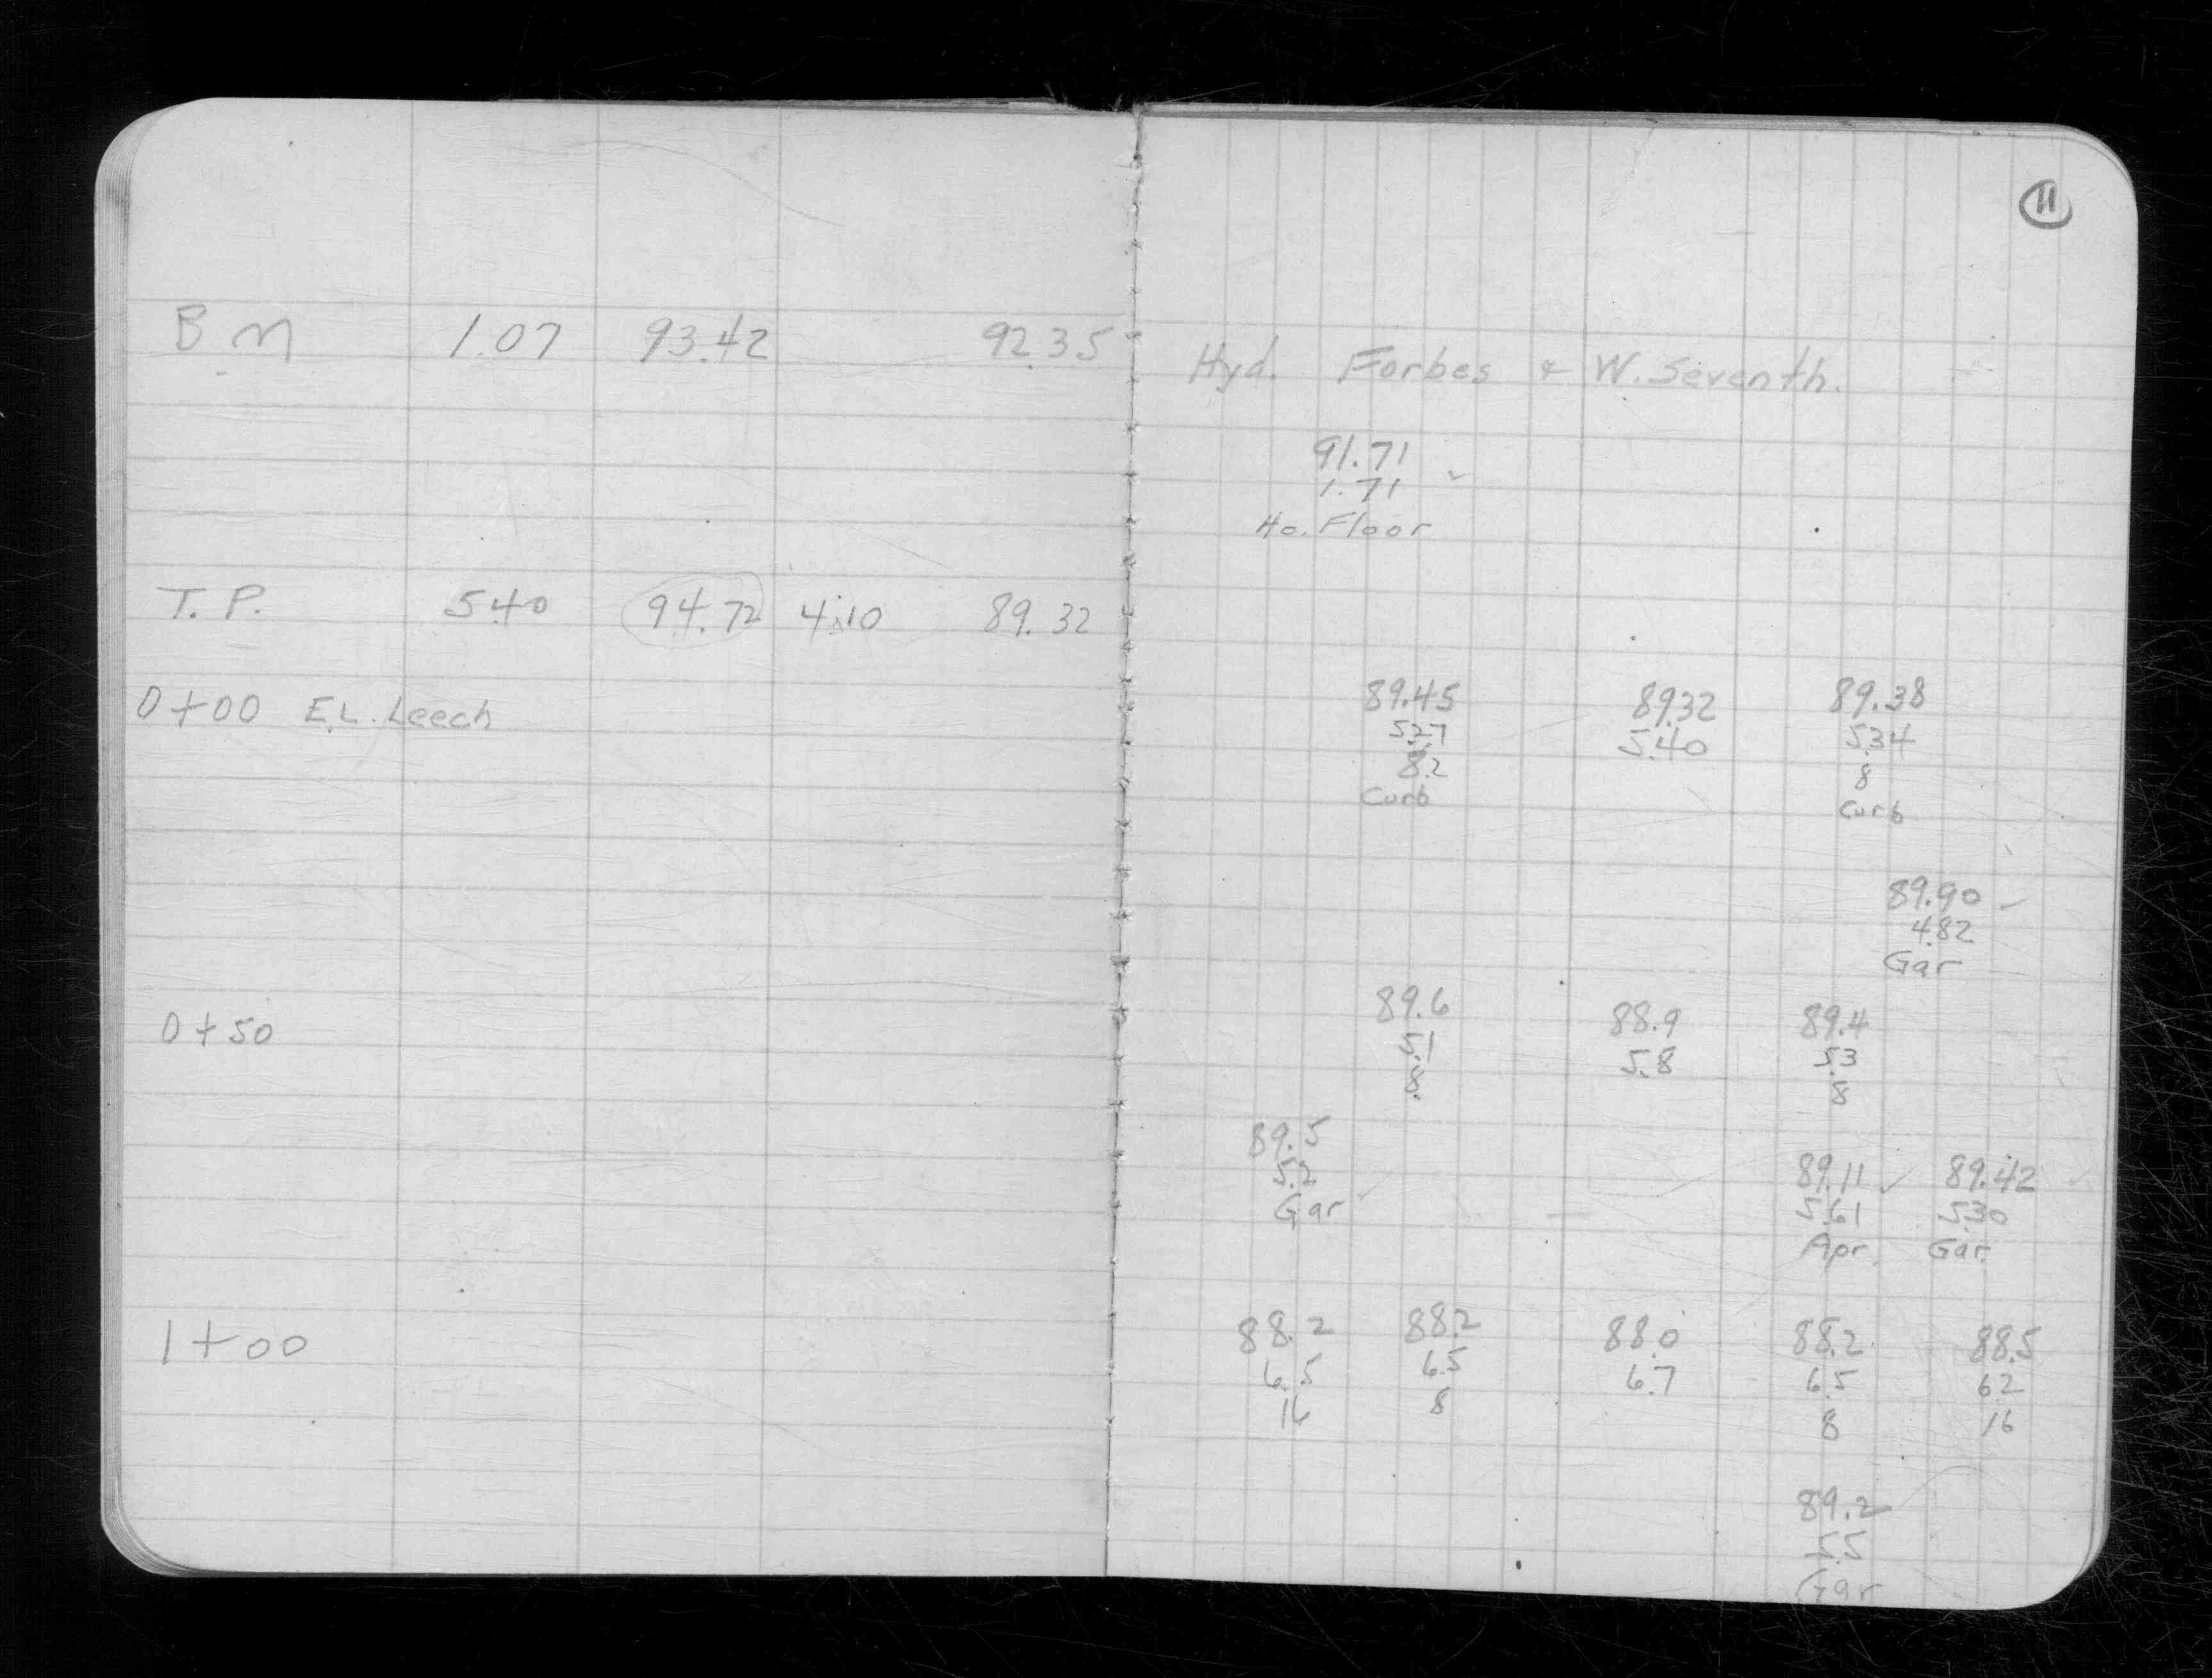 11
B M 1.07 93.42 92.35
Hyd. Forbes & W. Seventh.
91.71
1.71
Ho. Floor
T. P. 5.40 94.72 4.10 89.32
0+00 E.L. Leech
89.45 89.32 89.38
5.27 5.40 5.34
8.2 8
Curb Curb
89.90
4.82
Gar
0+50
89.6 88.9 89.4
5.1 5.8 5.3
8 8
89.5
5.2
Gar
89.11 89.42
5.61 5.30
Apr. Gar.
1+00
88.2 88.2 88.0 88.2 88.5
6.5 6.5 6.7 6.5 6.2
16 8 8 16
89.2
5.5
Gar